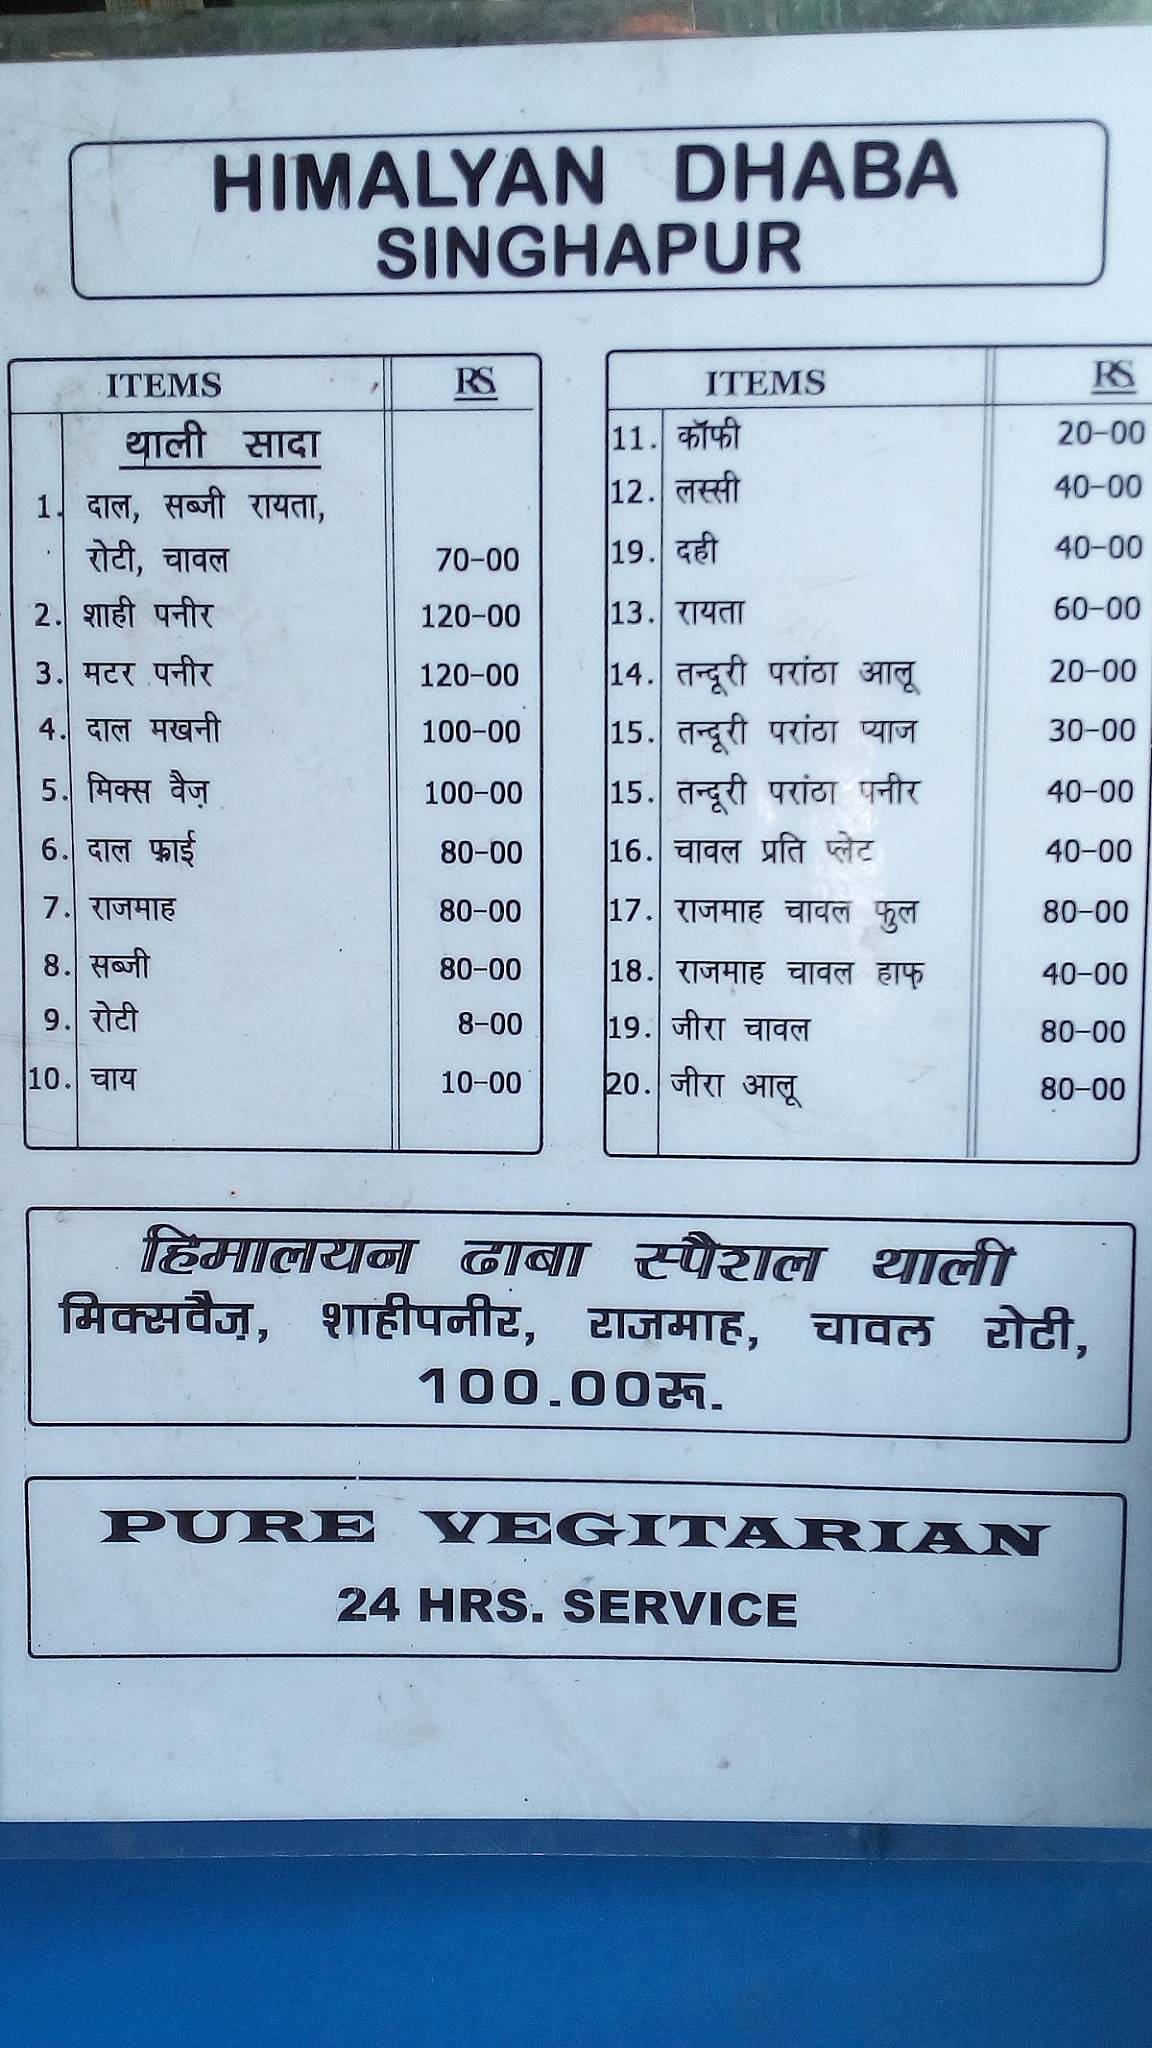 HIMALYAN DHABA
SINGHAPUR
ITEMS RS
थाली सादा
1. दाल, सब्जी रायता,
रोटी, चावल 70-00
2. शाही पनीर 120-00
3. मटर पनीर 120-00
4. दाल मखनी 100-00
5. मिक्स वैज़ 100-00
6. दाल फ्राई 80-00
7. राजमाह 80-00
8. सब्जी 80-00
9. रोटी 8-00
10. चाय 10-00
ITEMS RS
11. कॉफी 20-00
12. लस्सी 40-00
19. दही 40-00
13. रायता 60-00
14. तन्दूरी परांठा आलू 20-00
15. तन्दूरी परांठा प्याज 30-00
15. तन्दूरी परांठा पनीर 40-00
16. चावल प्रति प्लेट 40-00
17. राजमाह चावल फुल 80-00
18. राजमाह चावल हाफ 40-00
19. जीरा चावल 80-00
20. जीरा आलू 80-00
हिमालयन ढाबा स्पैशल थाली
मिक्सवैज़, शाहीपनीर, राजमाह, चावल रोटी,
100.00रू.
PURE VEGITARIAN
24 HRS. SERVICE